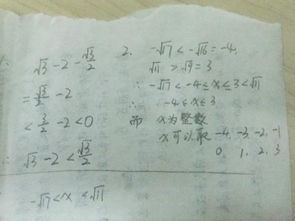 √3-2-√3/2
=√3/2-2
<3/2-2<0
∴ √3-2<√3/2
-√17<x<√11
2. -√17<-√16=-4,
√11>√9=3
∴ -√17<-4≤x≤3<√11
∴ -4≤x≤3
而 x为整数
x可以取-4,-3,-2,-1
0, 1, 2, 3